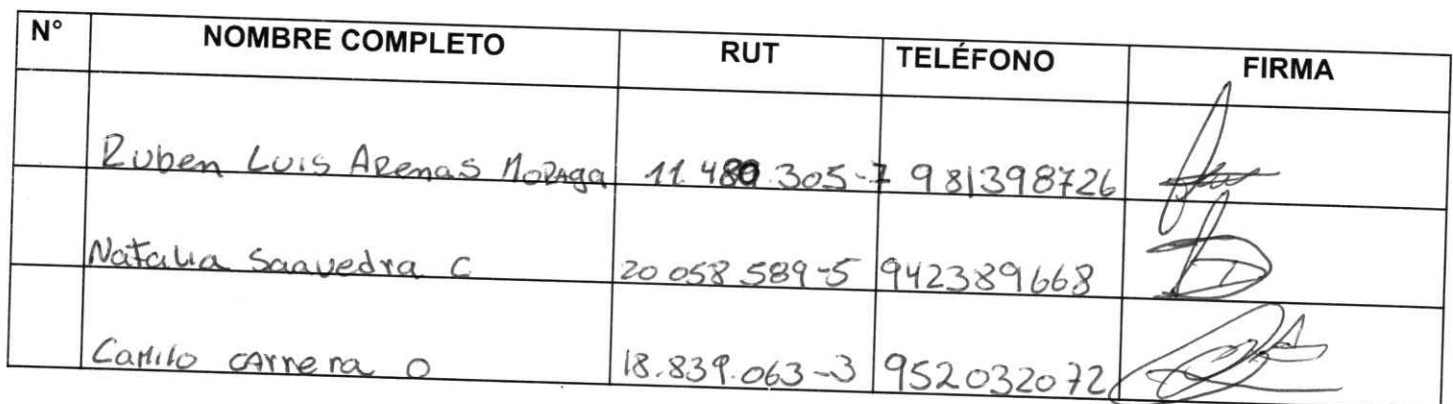 N° NOMBRE COMPLETO RUT TELÉFONO FIRMA
Ruben Luis Arenas Moraga 11.480.305-7 981398726
Natalia Saavedra C 20 058 589-5 942389668
Camilo Carrera O 18.839.063-3 952032072